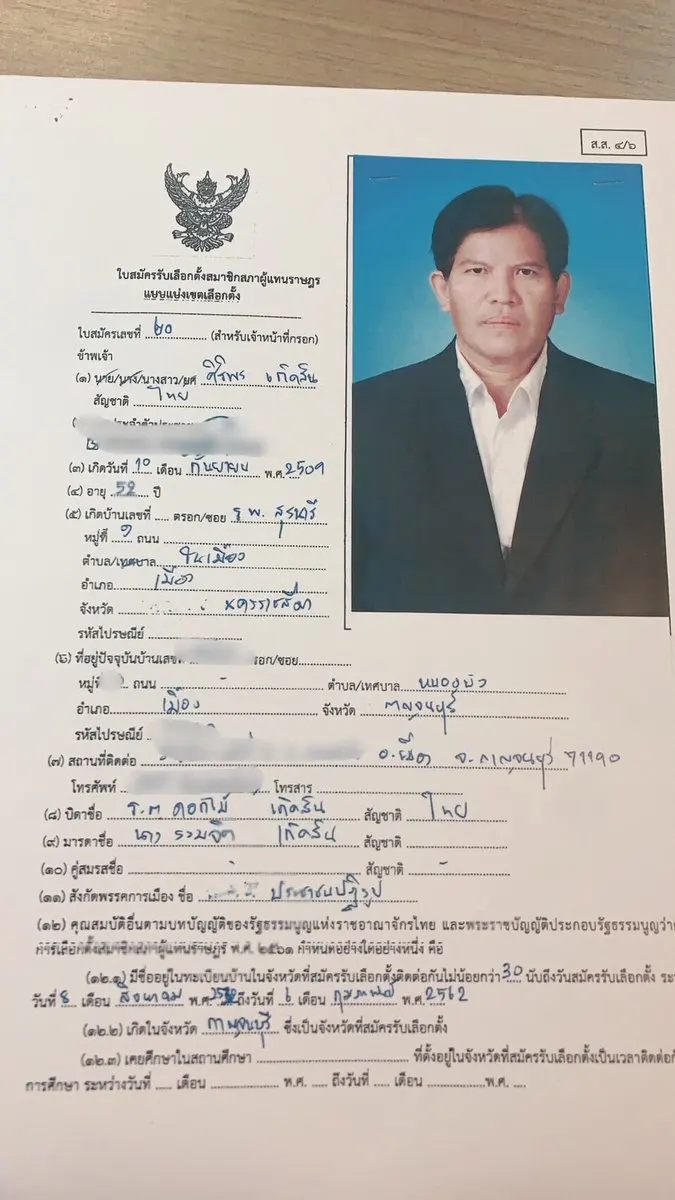 ส.ส. ๔/๖
ใบสมัครรับเลือกตั้งสมาชิกสภาผู้แทนราษฎร
แบบแบ่งเขตเลือกตั้ง
ใบสมัครเลขที่ ๒๐ (สำหรับเจ้าหน้าที่กรอก)
ข้าพเจ้า
(๑) นาย/นาง/นางสาว/ยศ ศิริพร เกิดสิน
สัญชาติ ไทย
(๓) เกิดวันที่ 10 เดือน กันยายน พ.ศ. 2509
(๔) อายุ 52 ปี
(๕) เกิดบ้านเลขที่ .... ตรอก/ซอย ร.พ. สุรนารี
หมู่ที่ ถนน
ตำบล/เทศบาล ในเมือง
อำเภอ เมือง
จังหวัด นครราชสีมา
รหัสไปรษณีย์
(๖) ที่อยู่ปัจจุบันบ้านเลขที่ ตรอก/ซอย
หมู่ที่ ถนน - ตำบล/เทศบาล หนองบัว
อำเภอ เมือง จังหวัด กาญจนบุรี
รหัสไปรษณีย์
(๗) สถานที่ติดต่อ อ.เมือง จ.กาญจนบุรี 71190
โทรศัพท์ โทรสาร
(๘) บิดาชื่อ ร.ต. ดอกไม้ เกิดสิน สัญชาติ ไทย
(๙) มารดาชื่อ นาง รวมจิต เกิดสิน สัญชาติ
(๑๐) คู่สมรสชื่อ - สัญชาติ -
(๑๑) สังกัดพรรคการเมือง ชื่อ ประชาชนปฏิรูป
(๑๒) คุณสมบัติอื่นตามบทบัญญัติของรัฐธรรมนูญแห่งราชอาณาจักรไทย และพระราชบัญญัติประกอบรัฐธรรมนูญว่าด้วย
การเลือกตั้งสมาชิกสภาผู้แทนราษฎร พ.ศ. ๒๕๖๑ กำหนดอย่างใดอย่างหนึ่ง คือ
(๑๒.๑) มีชื่ออยู่ในทะเบียนบ้านในจังหวัดที่สมัครรับเลือกตั้งติดต่อกันไม่น้อยกว่า 30 นับถึงวันสมัครรับเลือกตั้ง
วันที่ 8 เดือน สิงหาคม พ.ศ. ถึงวันที่ 6 เดือน กุมภาพันธ์ พ.ศ. 2562
(๑๒.๒) เกิดในจังหวัด กาญจนบุรี ซึ่งเป็นจังหวัดที่สมัครรับเลือกตั้ง
(๑๒.๓) เคยศึกษาในสถานศึกษา ที่ตั้งอยู่ในจังหวัดที่สมัครรับเลือกตั้งเป็นเวลาติดต่อ
การศึกษา ระหว่างวันที่ ..... เดือน ..... พ.ศ. ..... ถึงวันที่ ..... เดือน ..... พ.ศ. ....